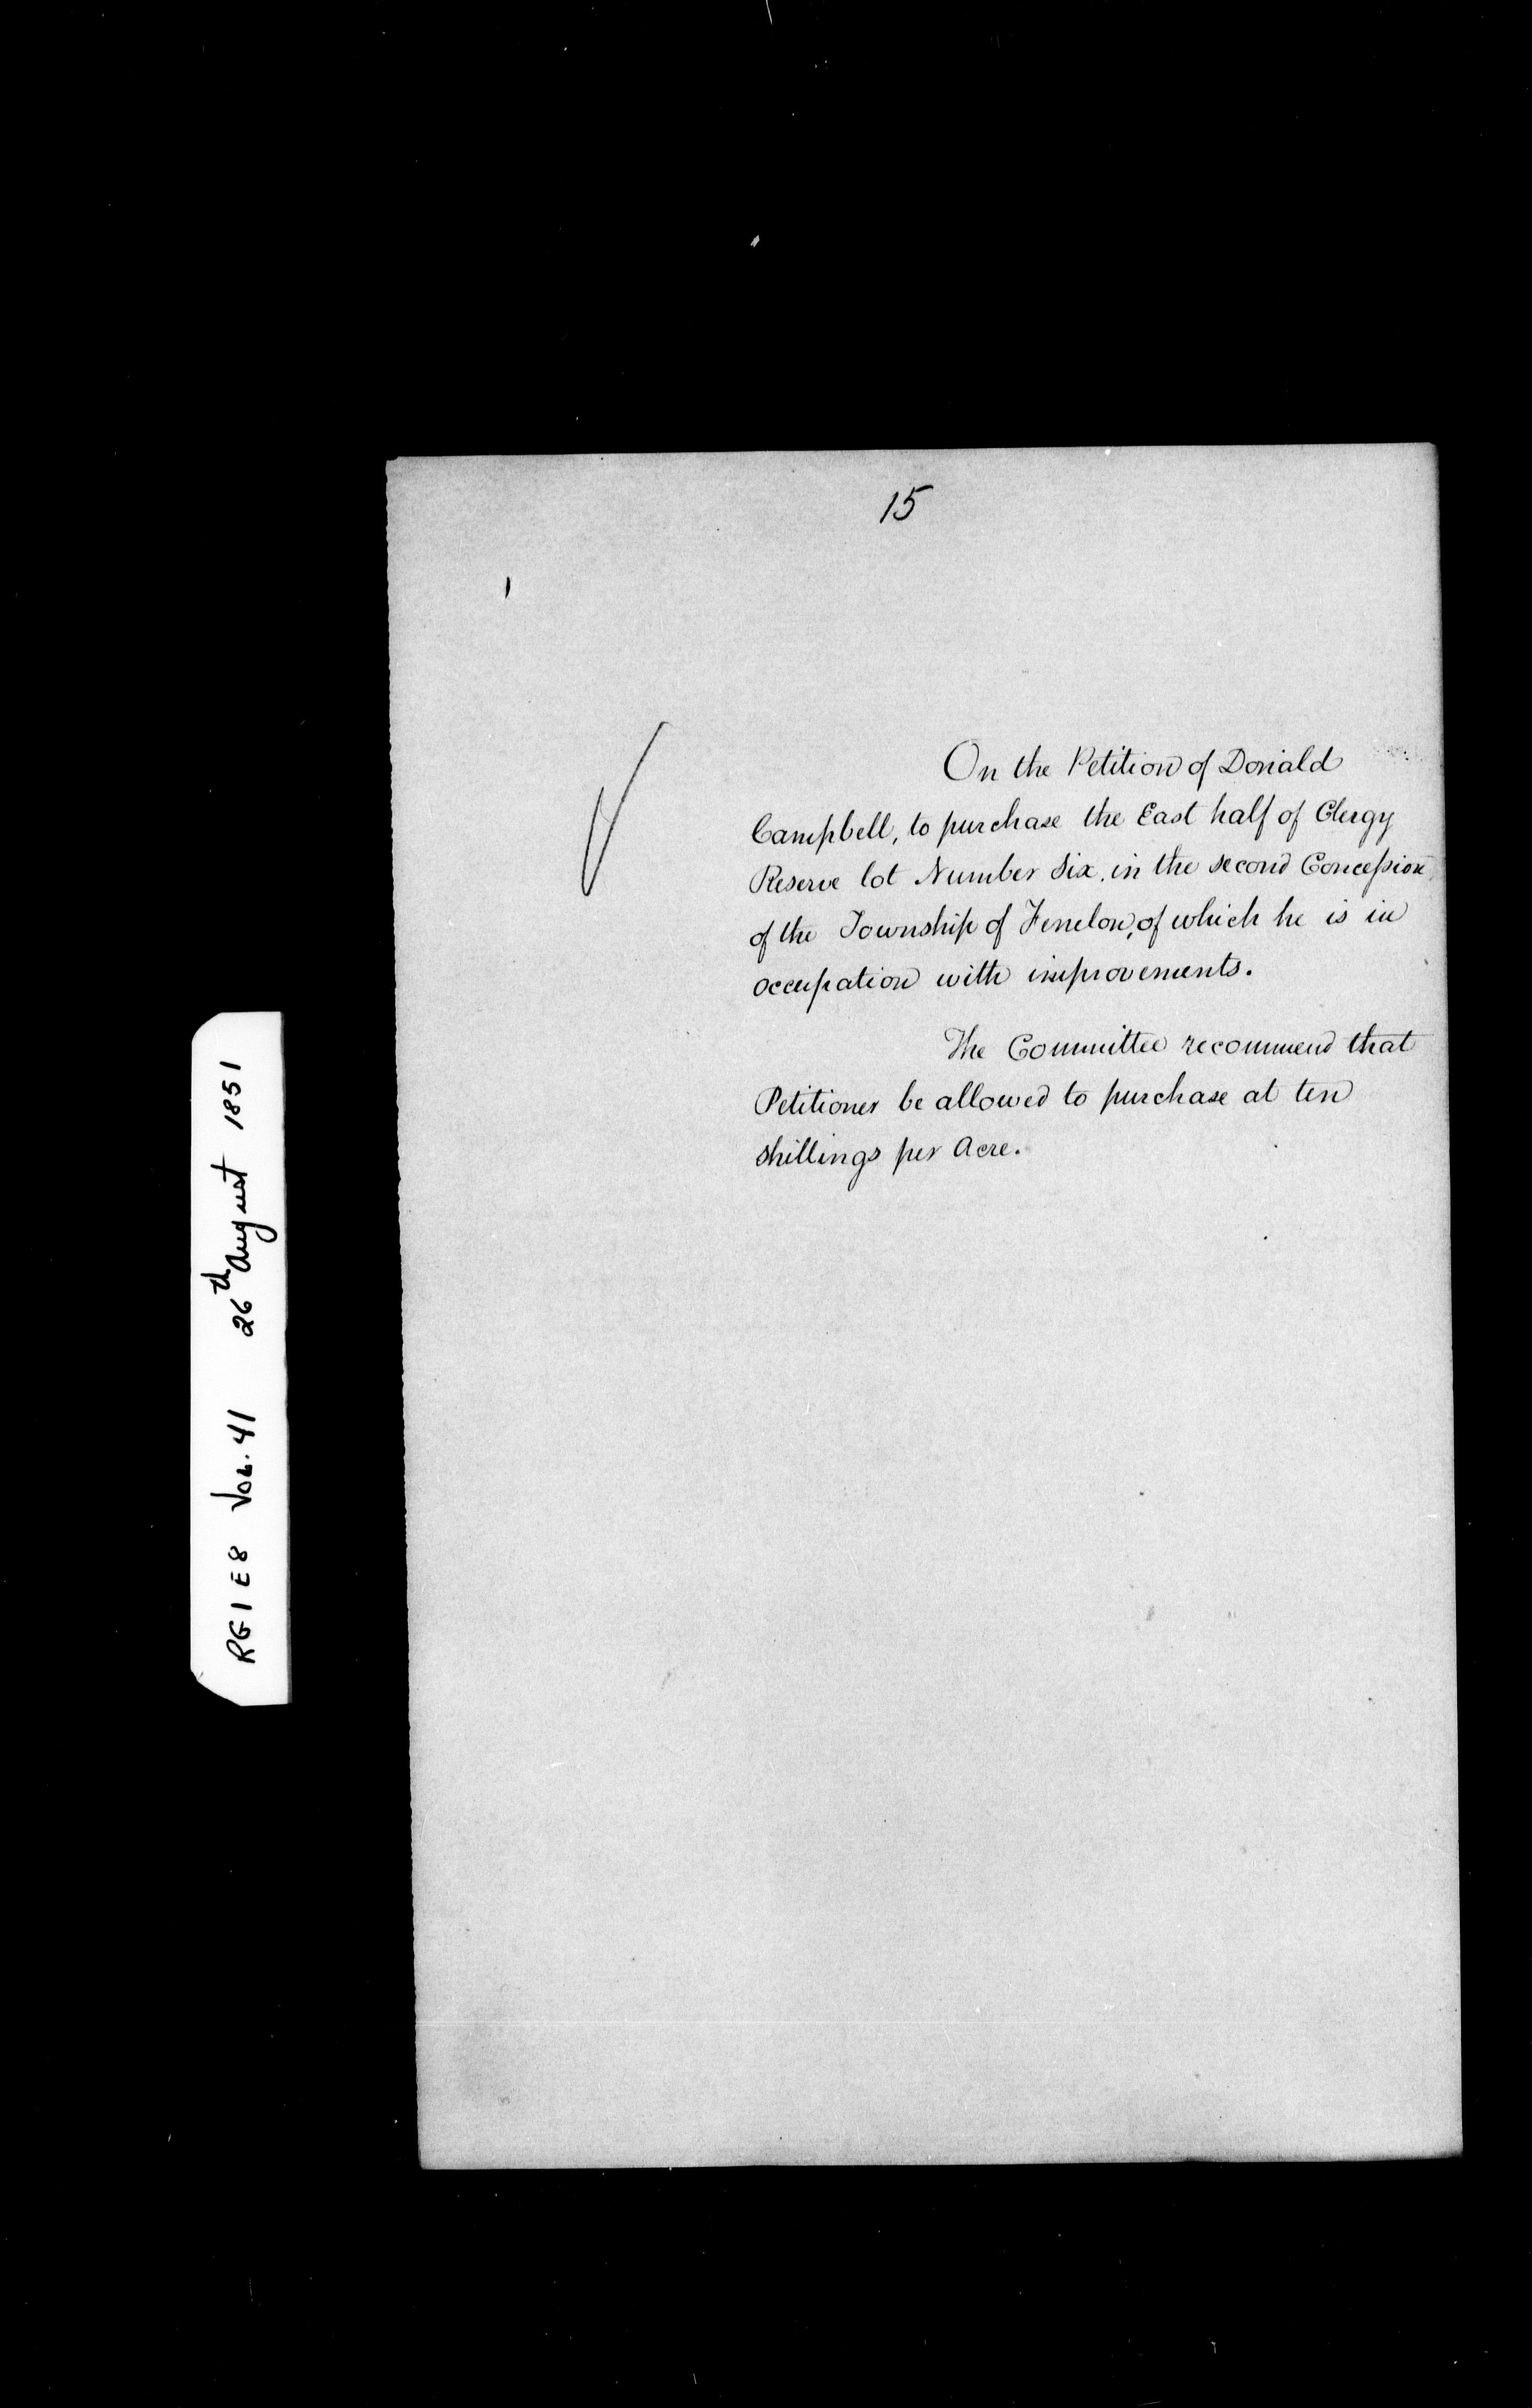 15
On the Petition of Donald
Campbell, to purchase the East half of Clergy
Reserve lot Number Six, in the second Concession
of the Township of Fenelon, of which he is in
occupation with improvements.
The Committee recommend that
Petitioner be allowed to purchase at ten
shillings per Acre.
RG1 E8 VOL. 41 26th August 1851